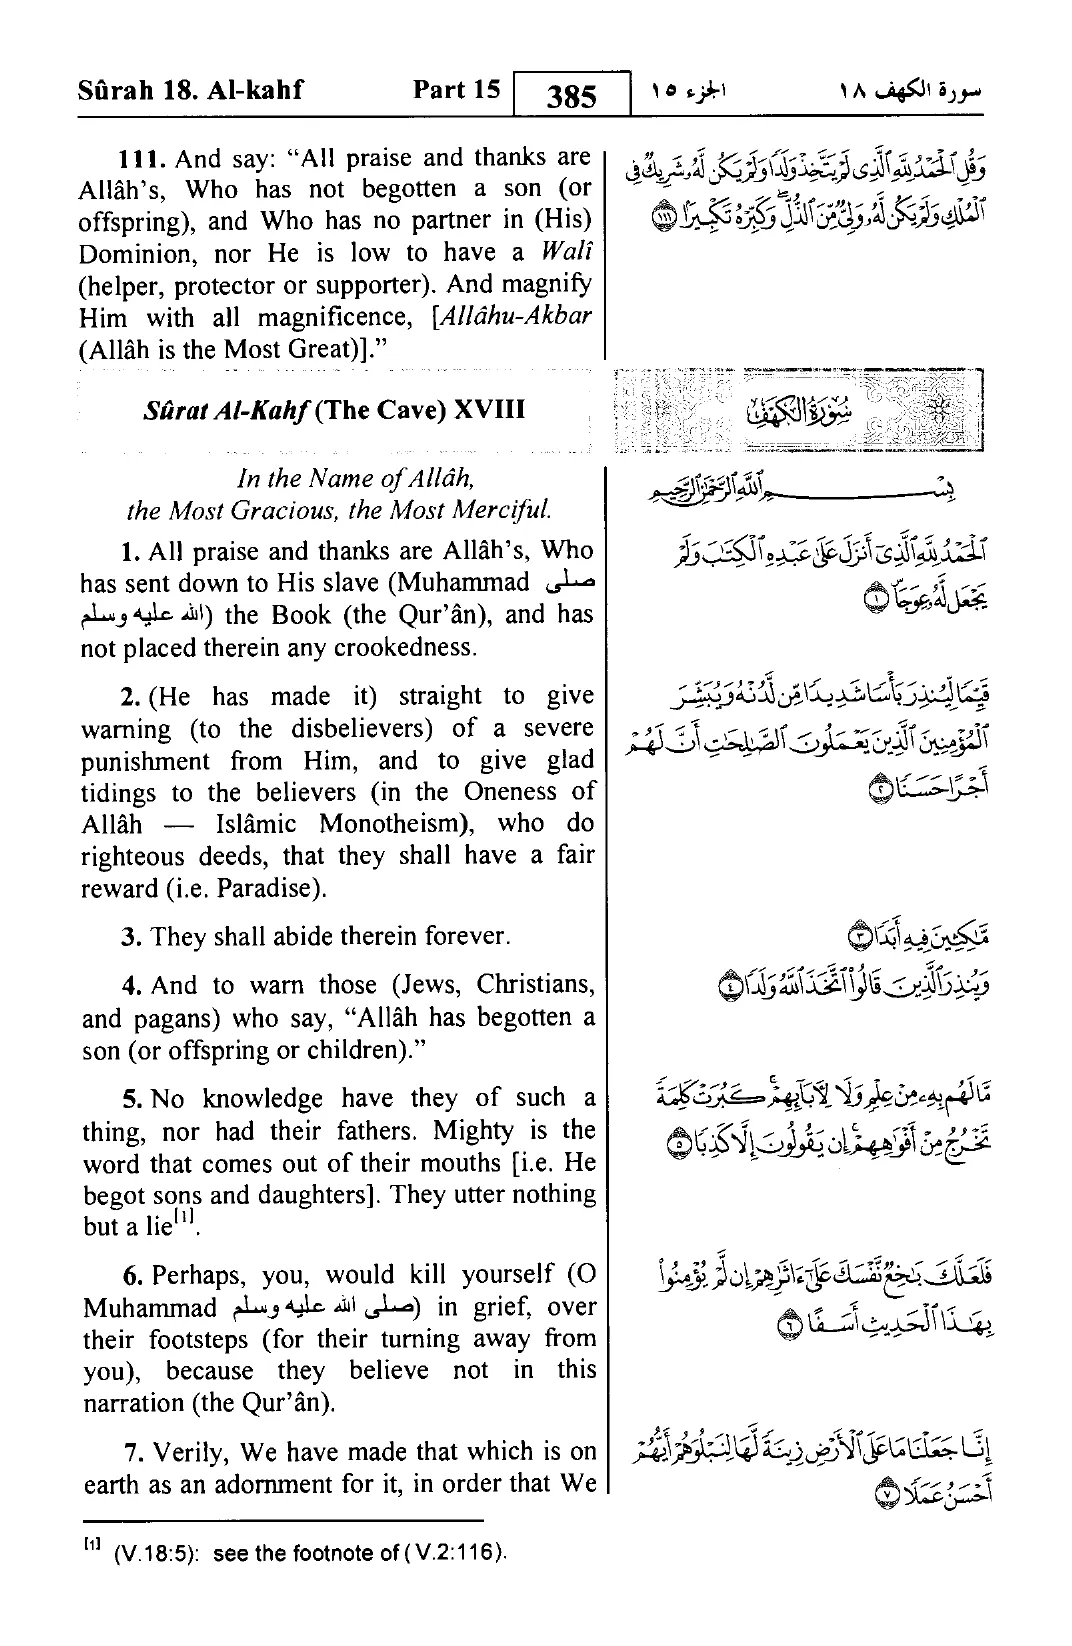 Sûrah 18. Al-kahf Part 15 385 الجزء ١٥ سورة الكهف ١٨
111. And say: “All praise and thanks are
Allâh’s, Who has not begotten a son (or
offspring), and Who has no partner in (His)
Dominion, nor He is low to have a Walî
(helper, protector or supporter). And magnify
Him with all magnificence, [Allâhu-Akbar
(Allâh is the Most Great)].”
وَقُلِ ٱلْحَمْدُ لِلَّهِ ٱلَّذِى لَمْ يَتَّخِذْ وَلَدًا وَلَمْ يَكُن لَّهُۥ شَرِيكٌ فِى
ٱلْمُلْكِ وَلَمْ يَكُن لَّهُۥ وَلِىٌّ مِّنَ ٱلذُّلِّ ۖ وَكَبِّرْهُ تَكْبِيرًا ١١١
Sûrat Al-Kahf (The Cave) XVIII
سُورَةُ الكَهْفِ
In the Name of Allâh,
the Most Gracious, the Most Merciful.
بِسْمِ ٱللَّهِ ٱلرَّحْمَٰنِ ٱلرَّحِيمِ
1. All praise and thanks are Allâh’s, Who
has sent down to His slave (Muhammad صلى
الله عليه وسلم) the Book (the Qur’ân), and has
not placed therein any crookedness.
ٱلْحَمْدُ لِلَّهِ ٱلَّذِىٓ أَنزَلَ عَلَىٰ عَبْدِهِ ٱلْكِتَٰبَ وَلَمْ
يَجْعَل لَّهُۥ عِوَجَا ۜ ١
2. (He has made it) straight to give
warning (to the disbelievers) of a severe
punishment from Him, and to give glad
tidings to the believers (in the Oneness of
Allâh — Islâmic Monotheism), who do
righteous deeds, that they shall have a fair
reward (i.e. Paradise).
قَيِّمًا لِّيُنذِرَ بَأْسًا شَدِيدًا مِّن لَّدُنْهُ وَيُبَشِّرَ
ٱلْمُؤْمِنِينَ ٱلَّذِينَ يَعْمَلُونَ ٱلصَّٰلِحَٰتِ أَنَّ لَهُمْ
أَجْرًا حَسَنًا ٢
3. They shall abide therein forever.
مَّٰكِثِينَ فِيهِ أَبَدًا ٣
4. And to warn those (Jews, Christians,
and pagans) who say, “Allâh has begotten a
son (or offspring or children).”
وَيُنذِرَ ٱلَّذِينَ قَالُوا۟ ٱتَّخَذَ ٱللَّهُ وَلَدًا ٤
5. No knowledge have they of such a
thing, nor had their fathers. Mighty is the
word that comes out of their mouths [i.e. He
begot sons and daughters]. They utter nothing
but a lie[1].
مَّا لَهُم بِهِۦ مِنْ عِلْمٍ وَلَا لِءَابَآئِهِمْ ۚ كَبُرَتْ كَلِمَةً
تَخْرُجُ مِنْ أَفْوَٰهِهِمْ ۚ إِن يَقُولُونَ إِلَّا كَذِبًا ٥
6. Perhaps, you, would kill yourself (O
Muhammad صلى الله عليه وسلم) in grief, over
their footsteps (for their turning away from
you), because they believe not in this
narration (the Qur’ân).
فَلَعَلَّكَ بَٰخِعٌ نَّفْسَكَ عَلَىٰٓ ءَاثَٰرِهِمْ إِن لَّمْ يُؤْمِنُوا۟
بِهَٰذَا ٱلْحَدِيثِ أَسَفًا ٦
7. Verily, We have made that which is on
earth as an adornment for it, in order that We
إِنَّا جَعَلْنَا مَا عَلَى ٱلْأَرْضِ زِينَةً لَّهَا لِنَبْلُوَهُمْ أَيُّهُمْ
أَحْسَنُ عَمَلًا ٧
[1] (V.18:5): see the footnote of (V.2:116).